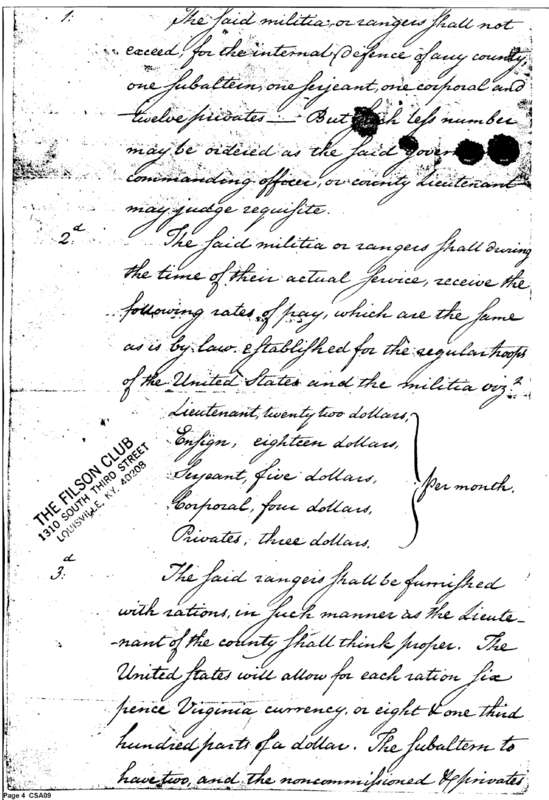 1. The said militia or rangers shall not
exceed, for the internal defence of any county,
one subaltern, one serjeant, one corporal and
twelve privates — But such less number
may be ordered as the said
commanding officer, or county Lieutenant
may judge requisite.
2.d The said militia or rangers shall during
the time of their actual service, receive the
following rates of pay, which are the same
as is by law established for the regular troops
of the United States and the militia viz.t
Lieutenant, twenty two dollars,
Ensign, eighteen dollars,
Serjeant, five dollars,
Corporal, four dollars,
Privates, three dollars.
per month.
THE FILSON CLUB
1310 SOUTH THIRD STREET
LOUISVILLE, KY. 40208
3.d The said rangers shall be furnished
with rations, in such manner as the Lieute-
-nant of the county shall think proper. The
United States will allow for each ration six
pence Virginia currency, or eight & one third
hundred parts of a dollar. The subaltern to
have two, and the noncommissioned & privates
Page 4 CSA09